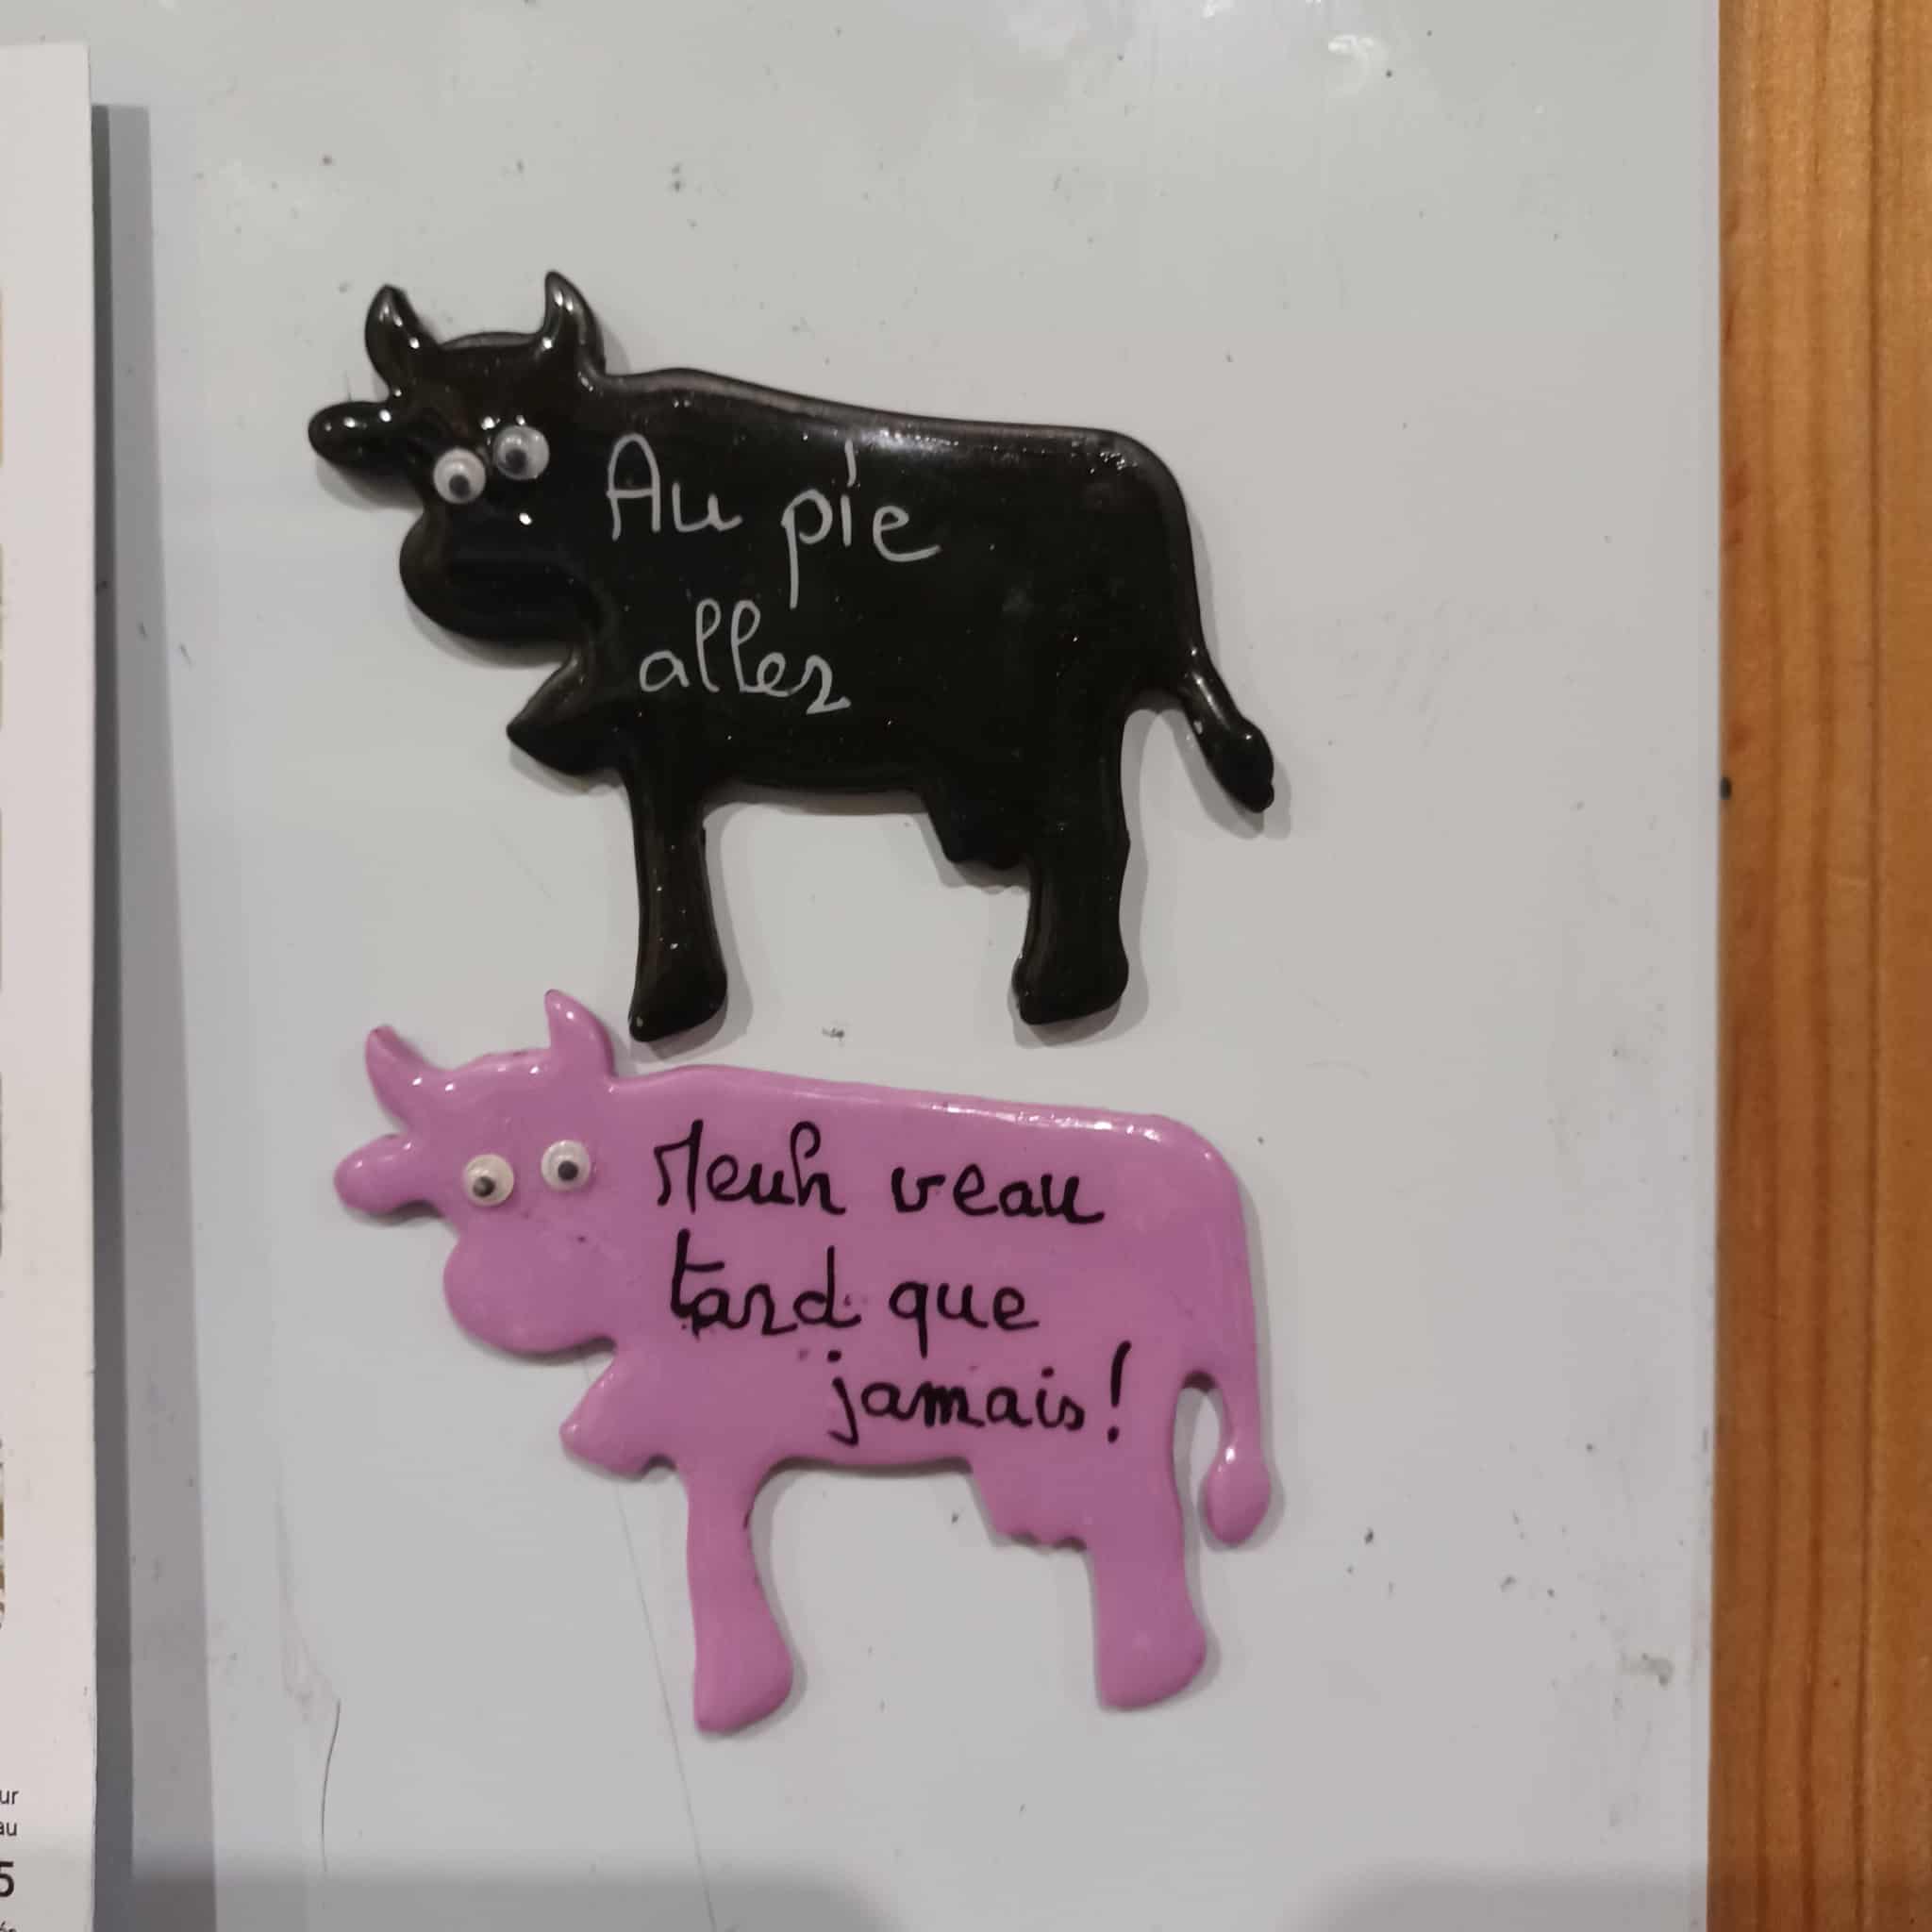 Au pie
aller
Meuh veau
tard que
jamais!
ur
au
5